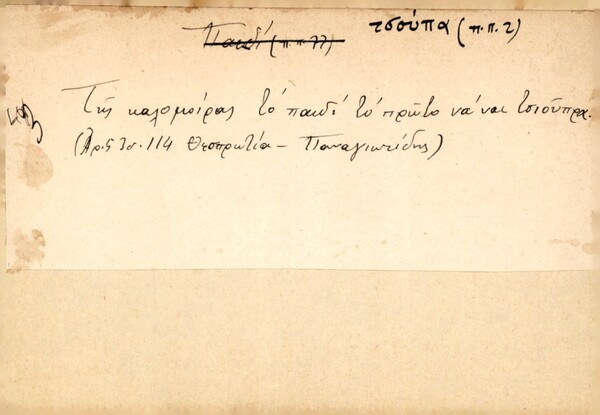 Παιδί (π.π. 77) τσούπα (π.π. 2)
Τῆς καλομοίρας τὸ παιδὶ τὸ πρῶτο νά 'ναι τσιοῦπρα.
(Ἀρ. 5 Ἰσ. 114 Θεσπρωτία – Παναγιωτίδης)